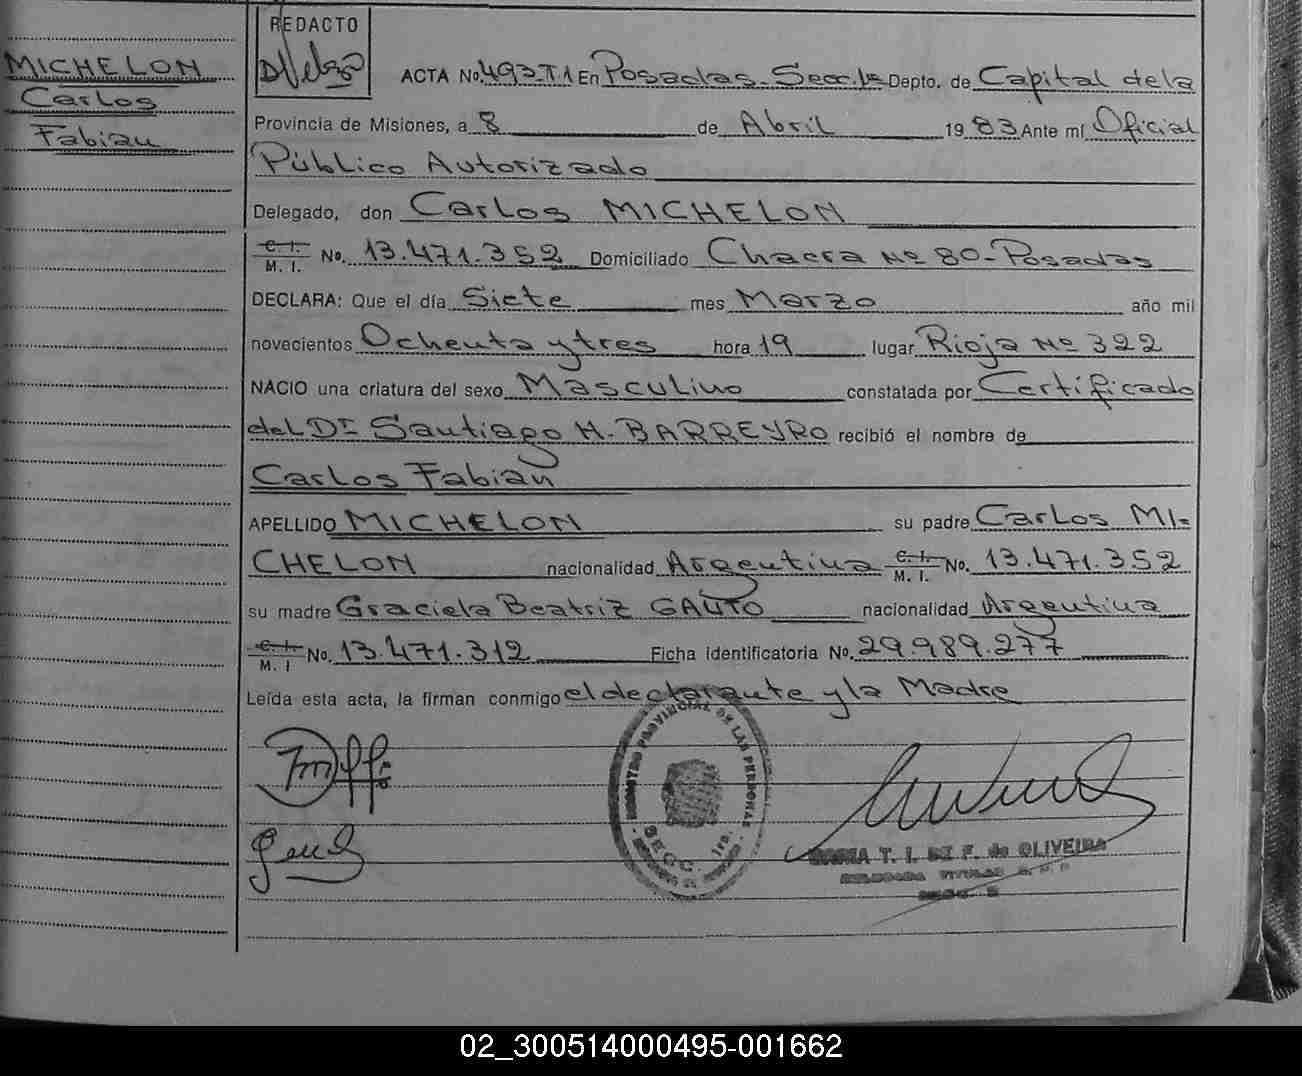 MICHELON
Carlos
Fabian
REDACTO
ACTA No. 493-T1 En Posadas-Secc.1a Depto. de Capital dela
Provincia de Misiones, a 8 de Abril 1983 Ante mí Oficial
Público Autorizado
Delegado, don Carlos MICHELON
C. I. / M. I. No. 13.471.352 Domiciliado Chacra Nº 80-Posadas
DECLARA: Que el día Siete mes Marzo año mil
novecientos Ochenta y tres hora 19 lugar Rioja Nº 322
NACIO una criatura del sexo Masculino constatada por Certificado
del Dr Santiago H. BARREYRO recibió el nombre de
Carlos Fabian
APELLIDO MICHELON su padre Carlos MI=
CHELON nacionalidad Argentina C. I. / M. I. No. 13.471.352
su madre Graciela Beatriz GAUTO nacionalidad Argentina
C. I. / M. I No. 13.471.312 Ficha identificatoria No. 29.989.277
Leída esta acta, la firman conmigo el declarante y la Madre
REGISTRO PROVINCIAL DE LAS PERSONAS
SECC. 1ra.
MARIA T. I. DE F. de OLIVEIRA
DELEGADA TITULAR
02_300514000495-001662